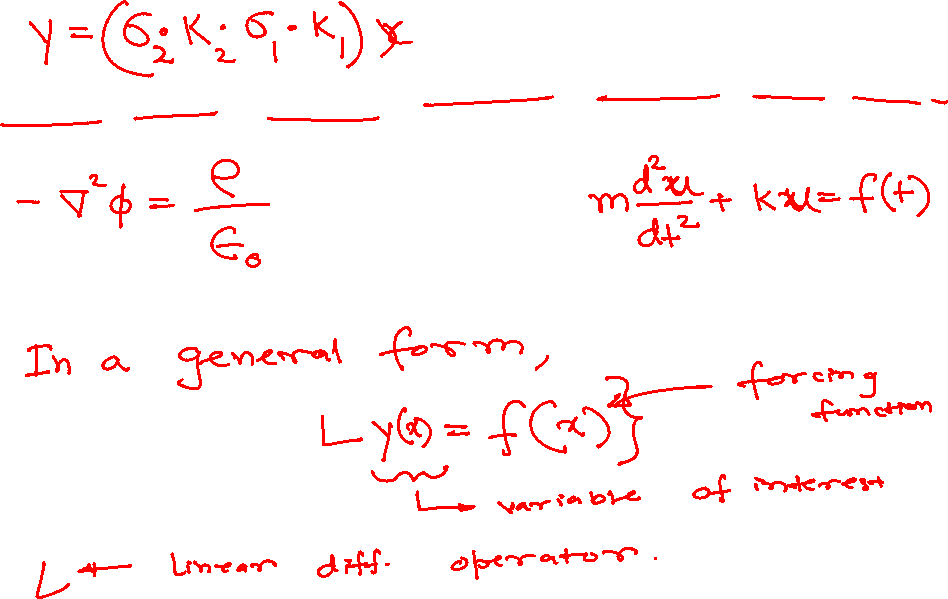 y = (σ₂ · K₂ · σ₁ · K₁) x
- ∇²φ = ρ/ϵ₀
m d²x/dt² + kx = f(t)
In a general form,
L y(x) = f(x) } ← forcing function
↳ variable of interest
L ← Linear diff. operator.